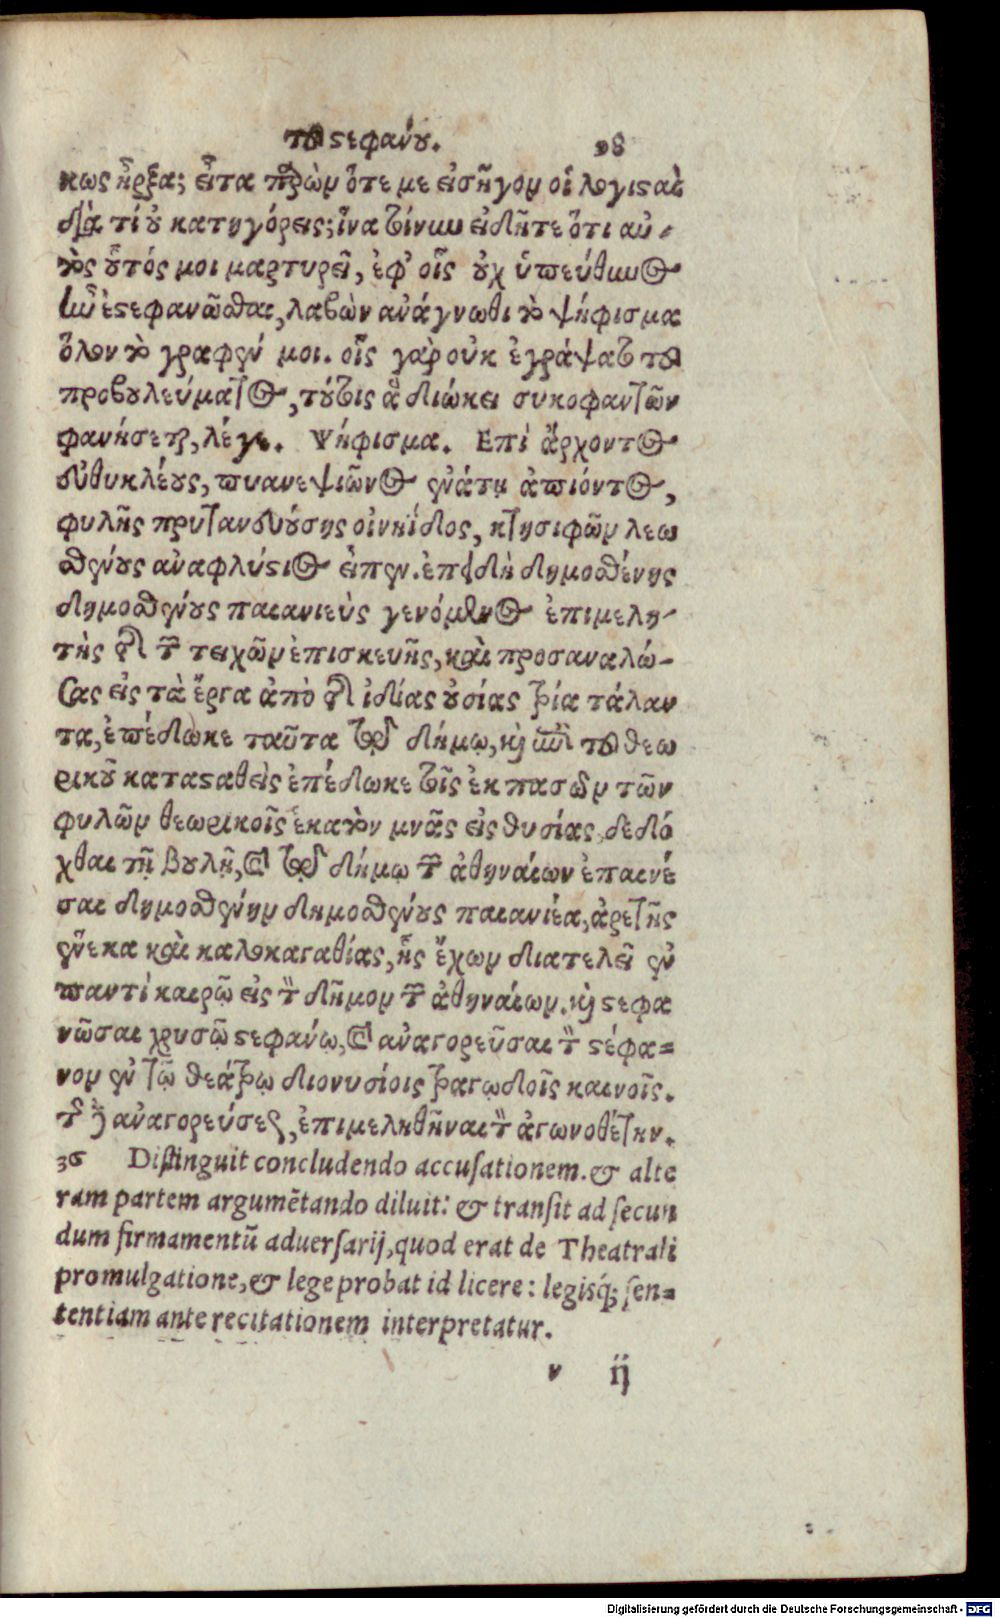 τοῦ στεφάνου. 98
κως ἦρξα; εἶτα παρὼν ὅτε με εἰσῆγον οἱ λογισταὶ
διὰ τί οὐ κατηγόρεις; ἵνα τοίνυν εἰδῆτε ὅτι αὐ-
τὸς οὗτός μοι μαρτυρεῖ, ἐφ' οἷς οὐχ ὑπεύθυνος
ἦν ἐστεφανῶσθαι, λαβὼν ἀνάγνωθι τὸ ψήφισμα
ὅλον τὸ γραφέν μοι. οἷς γὰρ οὐκ ἐγράψατο τοῦ
προβουλεύματος, τούτοις ἃ διώκει συκοφαντῶν
φανήσεται, λέγε. Ψήφισμα. Επὶ ἄρχοντος
εὐθυκλέους, πυανεψιῶνος ἐνάτῃ ἀπιόντος,
φυλῆς πρυτανευούσης οἰνηίδος, κτησιφῶν λεω
σθένους ἀναφλύστιος εἶπεν. ἐπειδὴ δημοσθένης
δημοσθένους παιανιεὺς γενόμενος ἐπιμελη-
τὴς τῆς τῶν τειχῶν ἐπισκευῆς, καὶ προσαναλώ-
σας εἰς τὰ ἔργα ἀπὸ τῆς ἰδίας οὐσίας τρία τάλαν
τα, ἐπέδωκε ταῦτα τῷ δήμῳ, καὶ ἐπὶ τοῦ θεω
ρικοῦ κατασταθεὶς ἐπέδωκε τοῖς ἐκ πασῶν τῶν
φυλῶν θεωρικοῖς ἑκατὸν μνᾶς εἰς θυσίας, δεδό
χθαι τῇ βουλῇ, καὶ τῷ δήμῳ τῶν ἀθηναίων ἐπαινέ
σαι δημοσθένην δημοσθένους παιανιέα, ἀρετῆς
ἕνεκα καὶ καλοκαγαθίας, ἧς ἔχων διατελεῖ ἐν
παντὶ καιρῷ εἰς τὸν δῆμον τῶν ἀθηναίων. καὶ στεφα
νῶσαι χρυσῷ στεφάνῳ, καὶ ἀναγορεῦσαι τὸν στέφα-
νον ἐν τῷ θεάτρῳ διονυσίοις τραγῳδοῖς καινοῖς.
τῆς δὲ ἀναγορεύσεως, ἐπιμεληθῆναι τὸν ἀγωνοθέτην.
36 Distinguit concludendo accusationem. & alte
ram partem argumētando diluit: & transit ad secun
dum firmamentū aduersarij, quod erat de Theatrali
promulgatione, & lege probat id licere: legisq́; sen-
tentiam ante recitationem interpretatur.
v ij
Digitalisierung gefördert durch die Deutsche Forschungsgemeinschaft - DFG